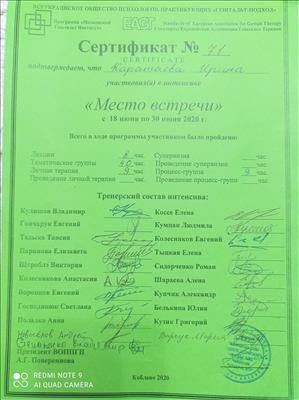 ВСЕУКРАИНСКОЕ ОБЩЕСТВО ПСИХОЛОГОВ, ПРАКТИКУЮЩИХ «ГЕШТАЛЬТ-ПОДХОД»
Программа «Московский Гештальт Института»
EAGT
Standards of European Association for Gestalt Therapy
Стандарты Европейской Ассоциации Гештальт Терапии
Сертификат № 71
CERTIFICATE
подтверждает, что Каратаева Ирина
участвовал(а) в интенсиве
«Место встречи»
с 18 июня по 30 июня 2020 г.
Всего в ходе программы участником было пройдено:
Лекции 8 час. Супервизия час.
Тематические группы 40 час. Проведение супервизии час.
Личная терапия 9 час. Процесс-группа 9 час.
Проведение личной терапии час. Проведение процесс-групп час.
Тренерский состав интенсива:
Кулишов Владимир Коссе Елена
Гончарук Евгений Кумпан Людмила
Тадыка Таисия Колесников Евгений
Паранова Елизавета Тыцкая Елена
Штробль Виктория Сидорченко Роман
Колесникова Анастасия Шараева Алена
Воронцов Евгений Купчик Александр
Господинюк Светлана Белькина Юлия
Полалко Анна Кузик Григорий
Андрей
Мария
Президент ВОППГП
А.Г. Повереннова
Коблево 2020
REDMI NOTE 9
AI QUAD CAMERA